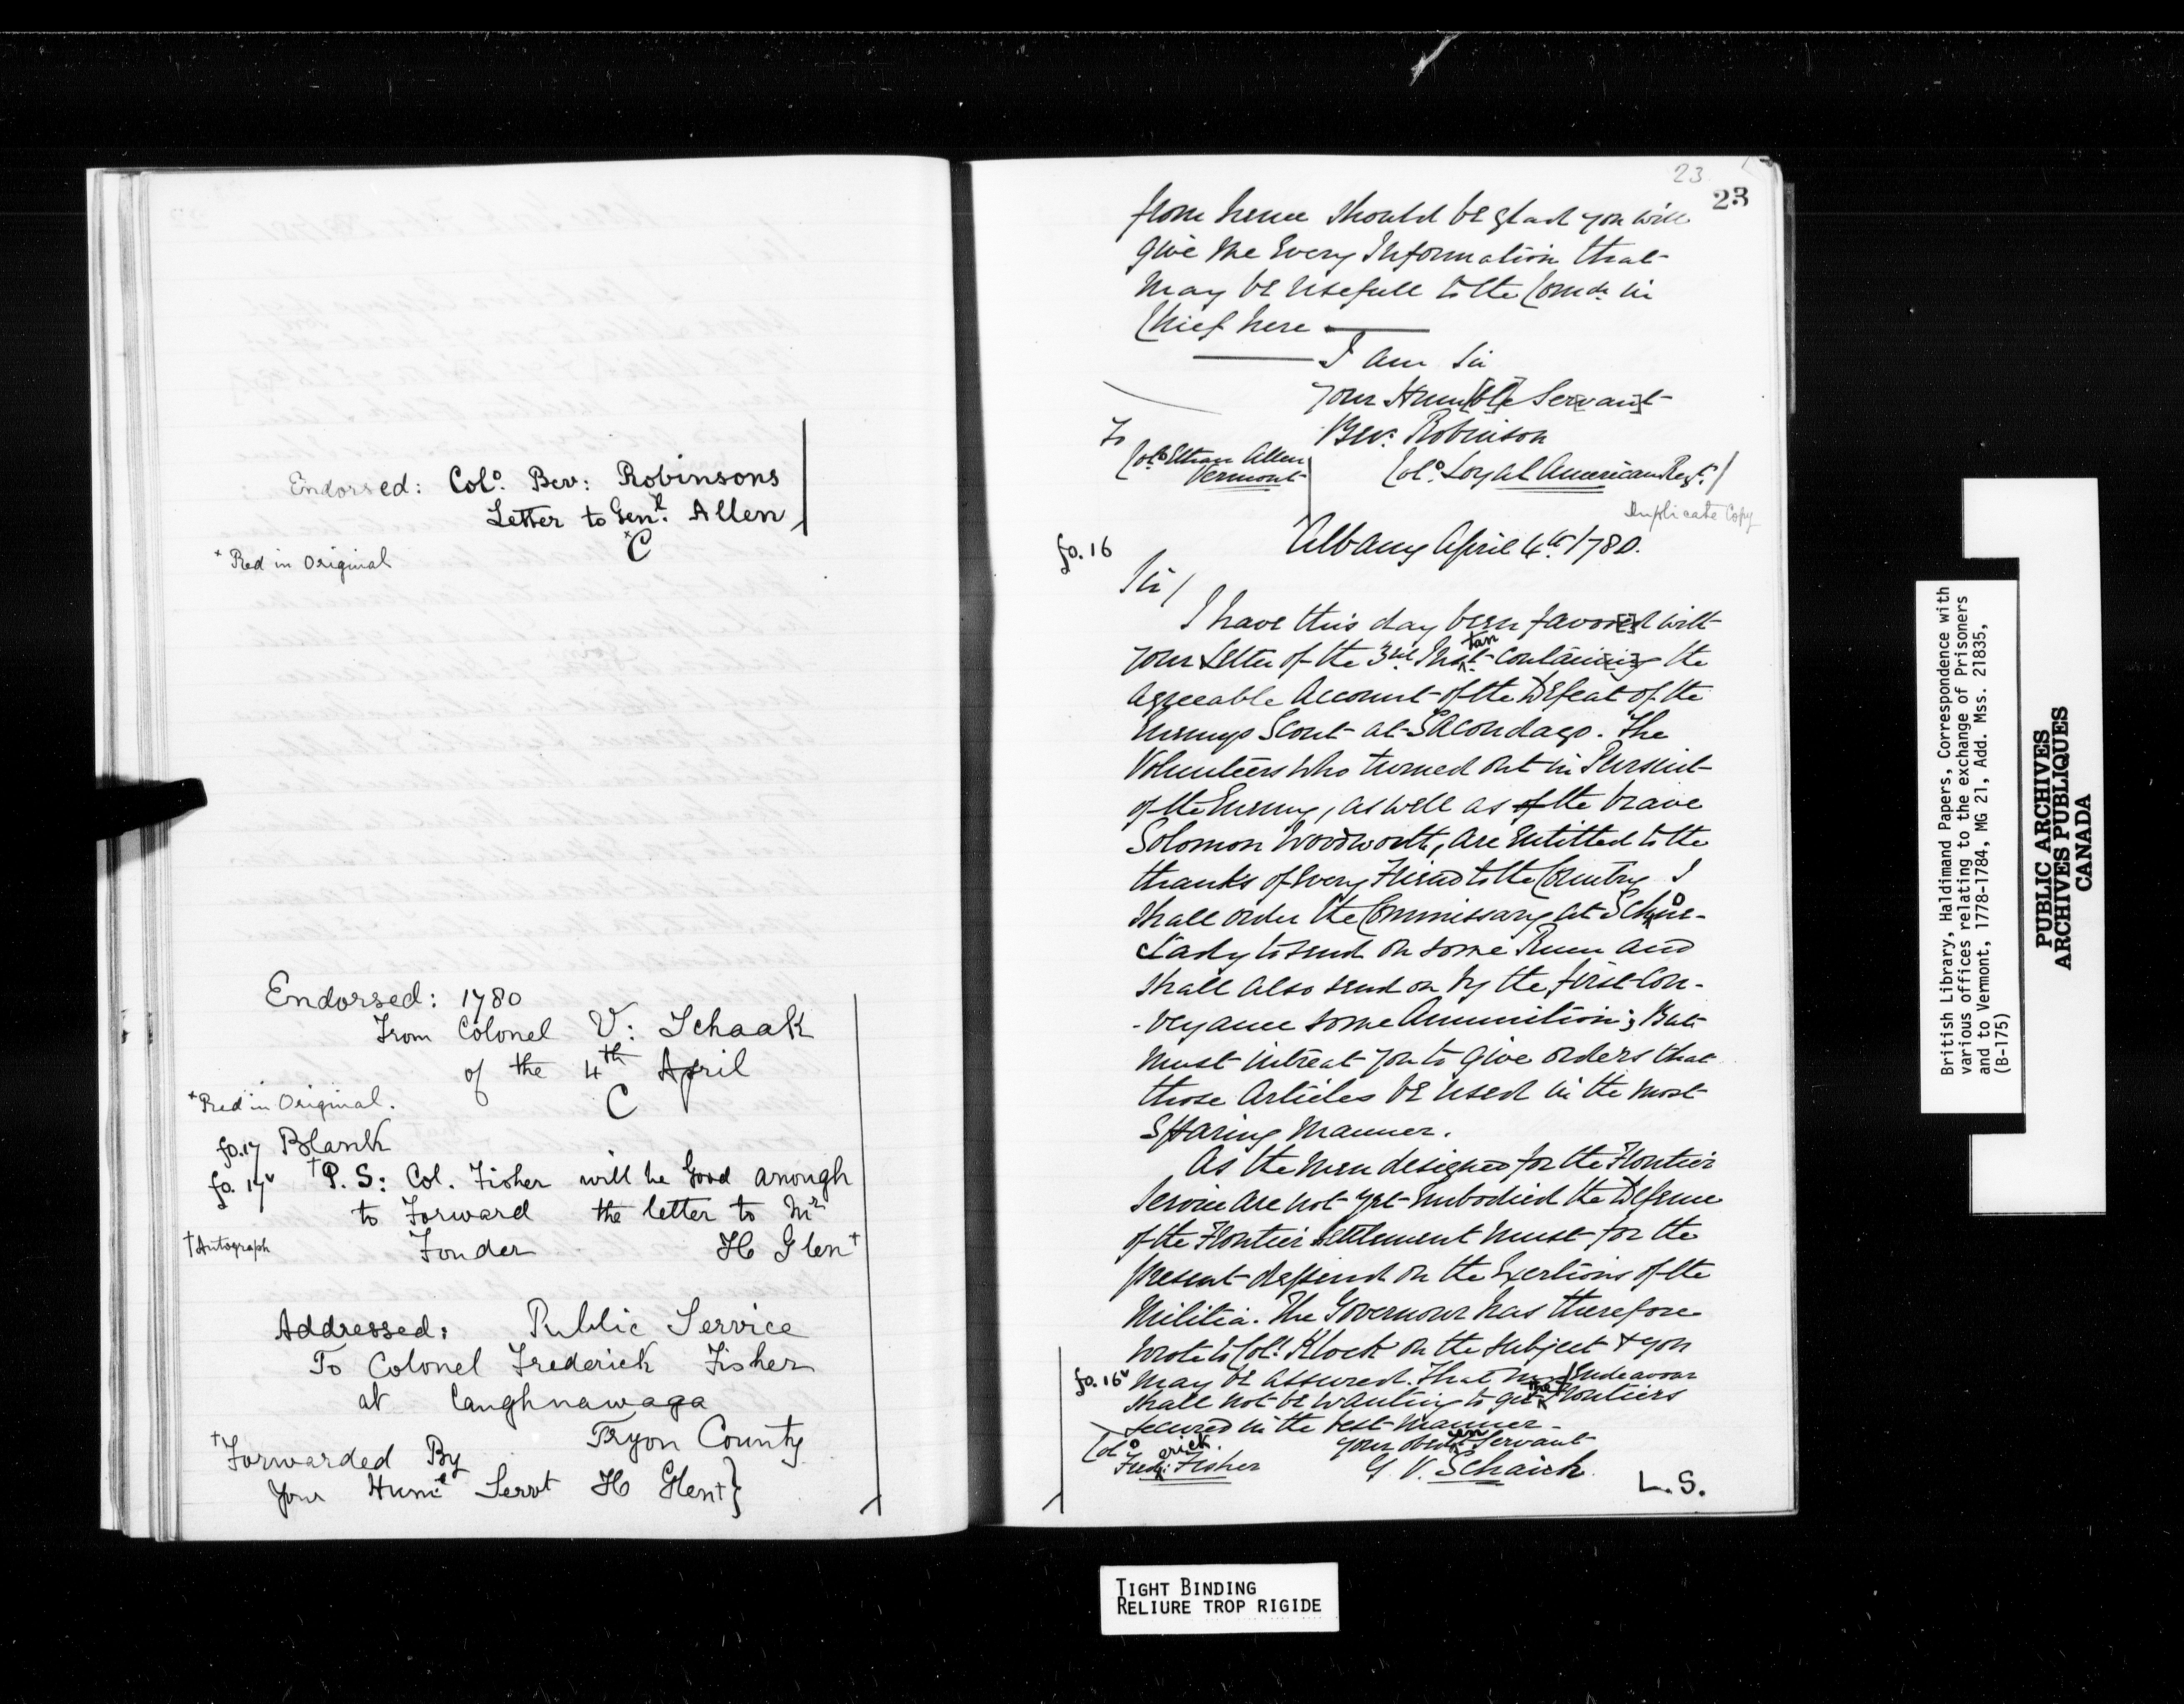 Endorsed: Colo. Bev: Robinsons
Letter to Genl. Allen
x C
x Red in Original
Endorsed: 1780
From Colonel V: Schaak
of the 4th April
C
x Red in Original.
fo.17 Blank
fo. 17v †P. S: Col. Fisher will be Good anough
to Forward the letter to Mr
†Autograph Fonder H Glen†
Addressed: Public Service
To Colonel Frederick Fisher
at Caughnawaga
Tryon County
†Forwarded By
Your Humle Servt H Glen†}
23
23
from hence should be glad you will
give me Every Information that
may be usefull to the Comdr in
Chief here
I am Sir
your Hum[ble] Ser[v]an[t]
Bev: Robinson
To
Colo Ethan Allen
Vermont
Colo. Loyal American Regt.
Duplicate Copy
fo. 16
Albany April 4th 1780.
Sir/
I have this day been favor[e]d with
your Letter of the 3rd Instant containing the
agreeable Account of the Defeat of the
Enemys Scout at Sacondago. The
Volunteers who turned out in Pursuit
of the Enemy, as well as of the brave
Solomon Woodworth, are entitled to the
thanks of every Friend to the Country I
shall order the Commissary at Schone-
ctady to send on some Rum and
shall also send on by the first Con-
-veyance some Ammunition; But
must intreat you to give orders that
those Articles be used in the most
Sparing Manner.
As the Men designed for the Frontier
Service are not yet Embodied the Defense
of the Frontier Settlement must for the
present depend on the Exertions of the
Militia. The Governour has therefore
wrote to Col. Klock on the subject & you
fo. 16v may be assured. That my Endeavour
shall not be wanting to get the Frontiers
secured in the best manner
your obedient Servant
Colo
Frederick Fisher
G V. Schaick
L.S.
British Library, Haldimand Papers, Correspondence with
various offices relating to the exchange of Prisoners
and to Vermont, 1778-1784, MG 21, Add. Mss. 21835,
(B-175)
PUBLIC ARCHIVES
ARCHIVES PUBLIQUES
CANADA
TIGHT BINDING
RELIURE TROP RIGIDE